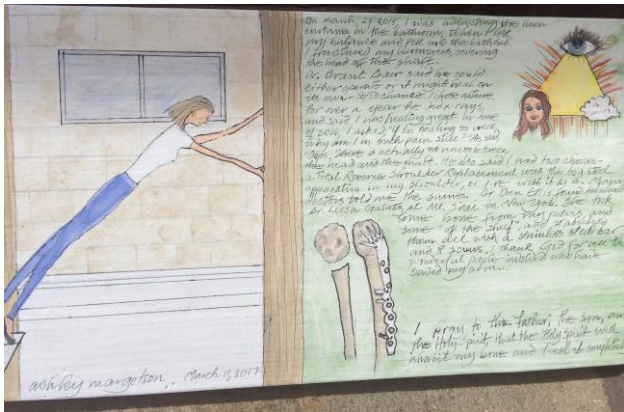 On march 29 2015, I was adjusting the linen
curtains in the bathroom, when I lost
my balance and fell into the bathtub.
I fractured my humerus, severing
the head of the shaft.
Dr. Brant Bair said he could
either operate or it might heal on
its own - 50/50 chance. I chose nature.
for over a year he did x-rays
and said I was healing great. In June
of 2016, I asked, "If I'm healing so well,
why am I in such pain still?" He said
"Oops, there is actually no union between
the head and the shaft. He also said I had two choices -
a Total Reverse Shoulder Replacement with the big steel
apparatus in my shoulder, or live with it as is.
Doctors told me the same. Dr Dan
Dr. Leesa Galatz, at Mt. Sinai in New York. She took
some bone from my pelvis, and
some "off the shelf", and stabilized
them all with a stainless steel bar
and 8 screws. I thank God for all the
wonderful people involved who have
saved my arm...
I pray to the Father, the Son, and
the Holy Spirit that the Holy Spirit will
inhabit my bone and heal it completely
ashley margetson.. March 11, 2017